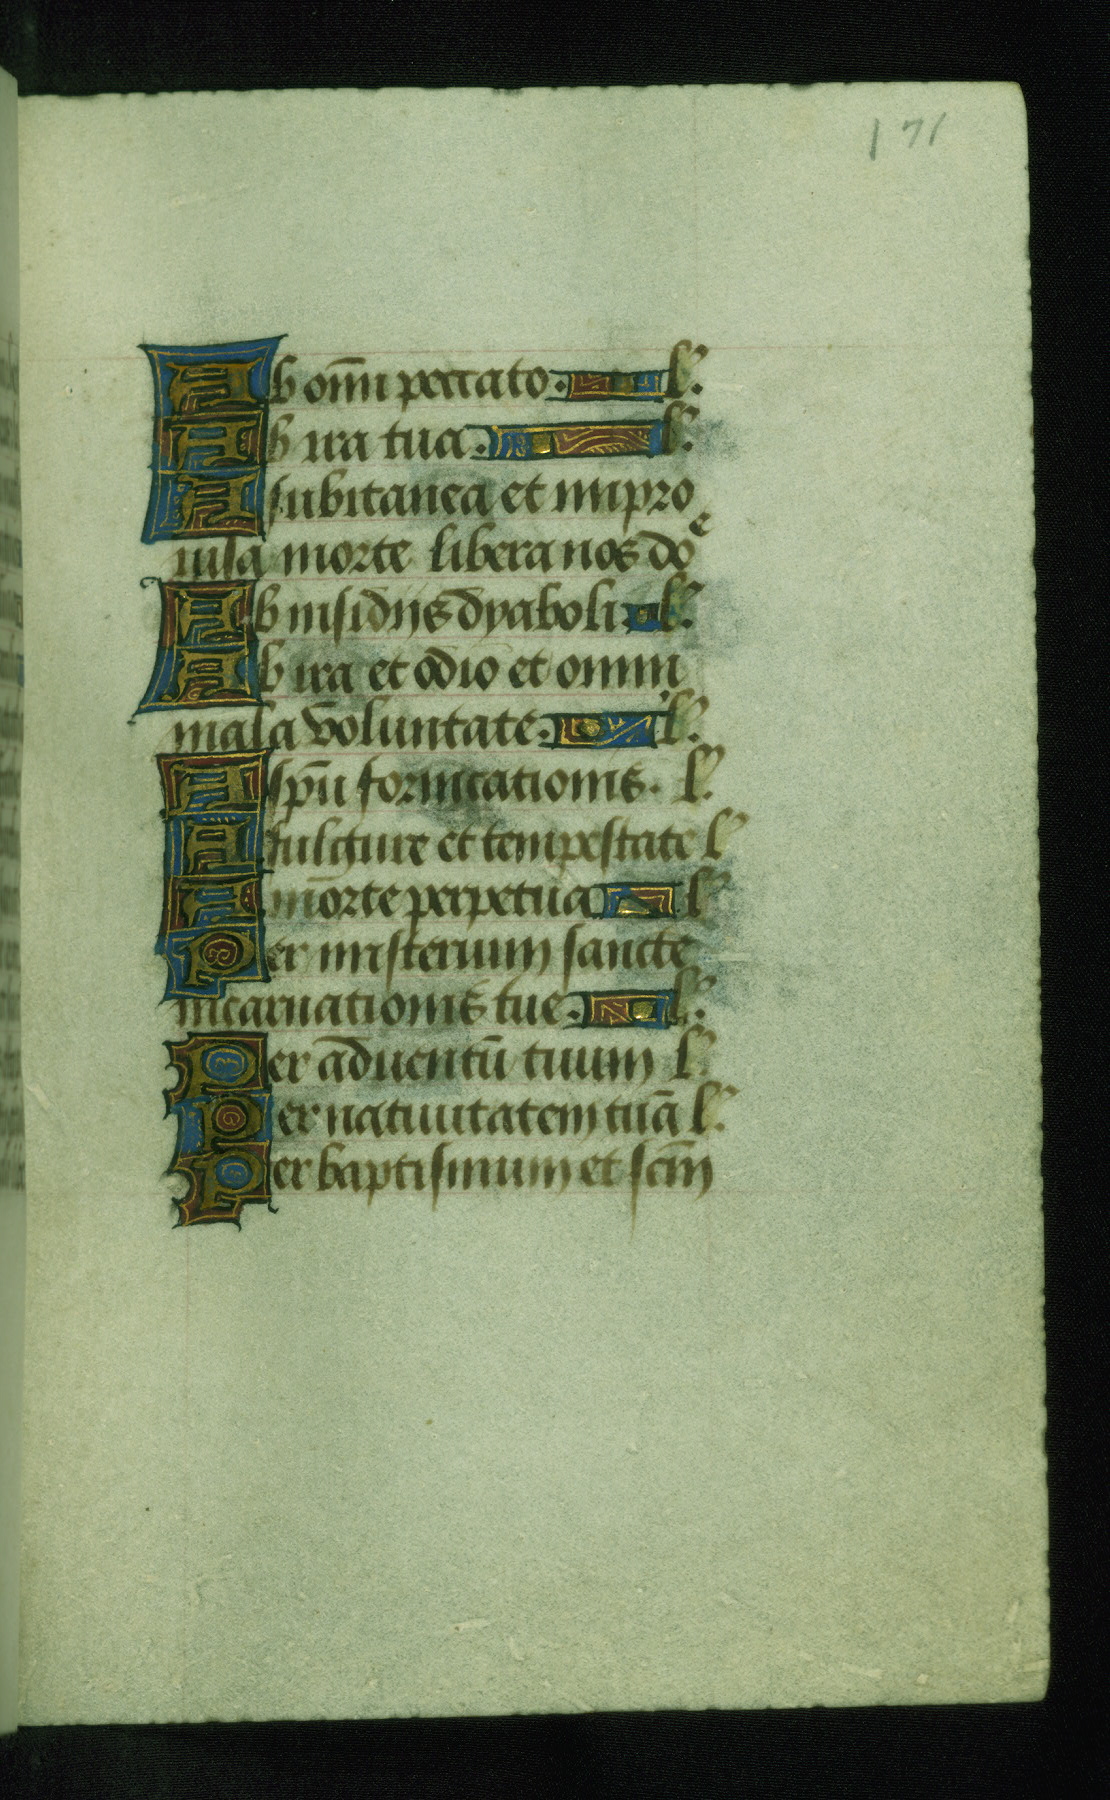 171
Ab om̄i peccato. l'.
Ab ira tua. l'.
A subitanea et impro
uisa morte libera nos do^e
Ab insidijs dyaboli. l'.
Ab ira et odio et omni
mala voluntate. l'.
A sp̄u fornicationis. l'.
A fulgure et tempestate l'
A morte perpetua l'
Per misterium sancte
incarnationis tue. l'.
Per aduentū tuum l'.
Per natiuitatem tuā l'.
Per baptismum et sc̄m